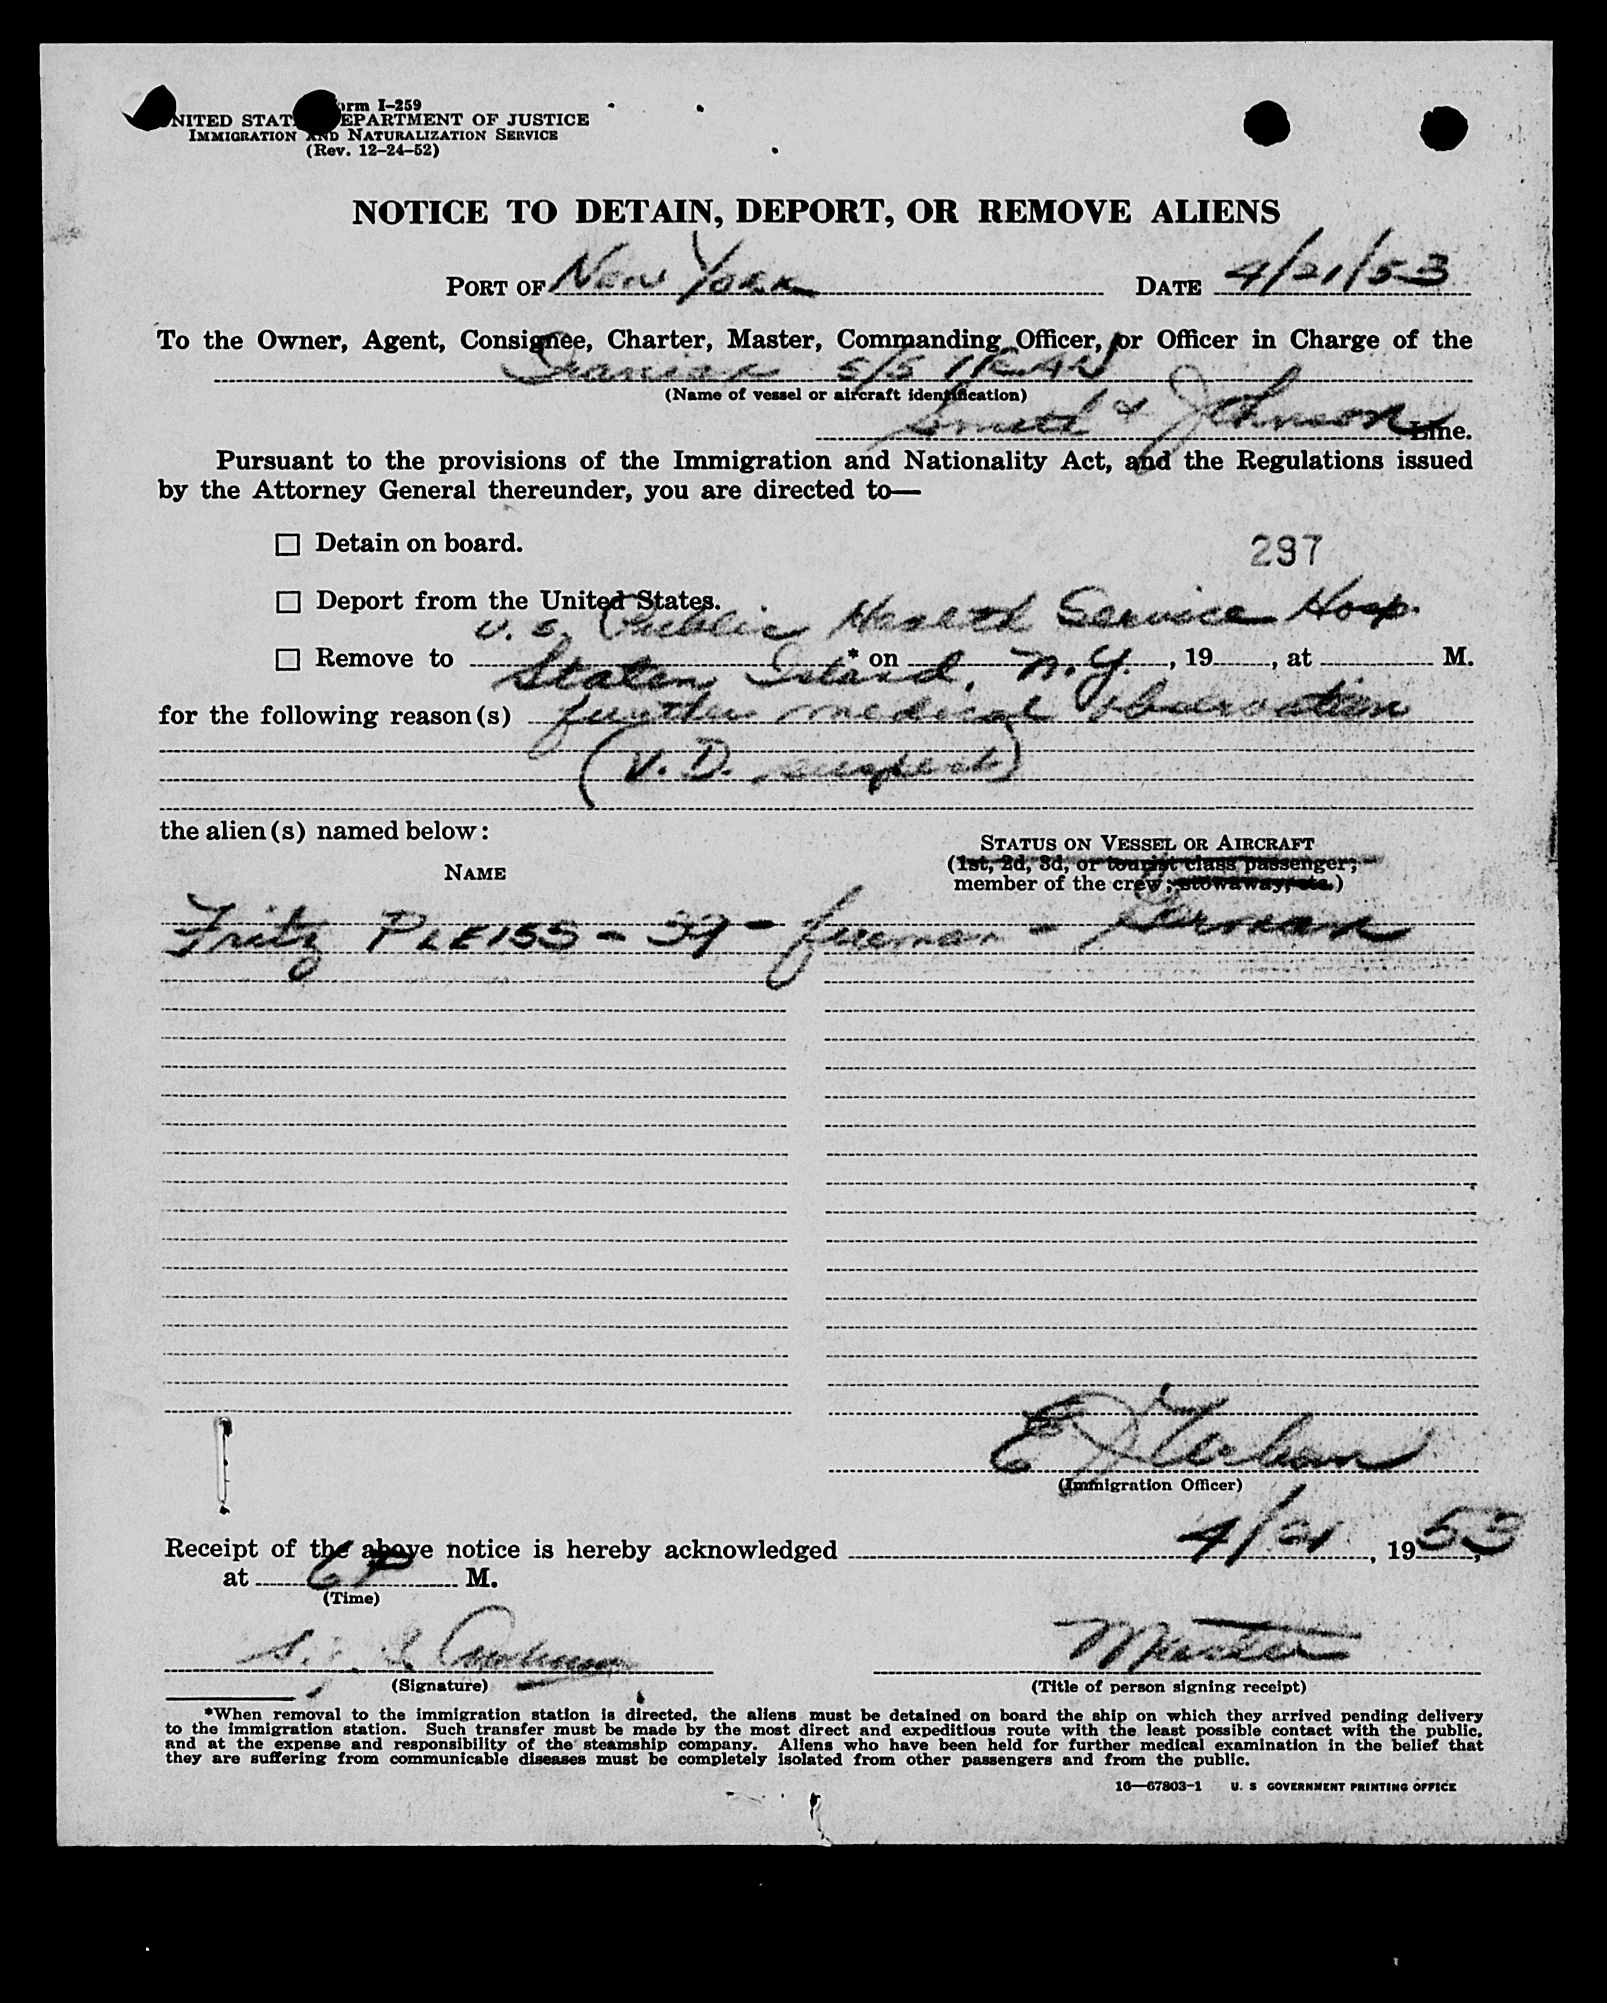 Form I-259
UNITED STATES DEPARTMENT OF JUSTICE
IMMIGRATION AND NATURALIZATION SERVICE
(Rev. 12-24-52)
NOTICE TO DETAIN, DEPORT, OR REMOVE ALIENS
PORT OF New York DATE 4/21/53
To the Owner, Agent, Consignee, Charter, Master, Commanding Officer, or Officer in Charge of the
Iranian S/S IRAN
(Name of vessel or aircraft identification)
Smith & Johnson Line.
Pursuant to the provisions of the Immigration and Nationality Act, and the Regulations issued
by the Attorney General thereunder, you are directed to—
☐ Detain on board.
297
☐ Deport from the United States.
U. S. Public Health Service Hosp.
☐ Remove to * on , 19 , at M.
Staten Island, N.Y.
for the following reason(s) further medical observation
(V. D. suspect)
the alien(s) named below:
NAME
STATUS ON VESSEL OR AIRCRAFT
(1st, 2d, 3d, or tourist class passenger;
member of the crew; stowaway, etc.)
Fritz PLEISS - 39 - fireman - German
E J
(Immigration Officer)
Receipt of the above notice is hereby acknowledged 4/21, 1953,
at 6 P M.
(Time)
Master
(Signature)
(Title of person signing receipt)
*When removal to the immigration station is directed, the aliens must be detained on board the ship on which they arrived pending delivery
to the immigration station. Such transfer must be made by the most direct and expeditious route with the least possible contact with the public,
and at the expense and responsibility of the steamship company. Aliens who have been held for further medical examination in the belief that
they are suffering from communicable diseases must be completely isolated from other passengers and from the public.
16—67803-1 U. S GOVERNMENT PRINTING OFFICE